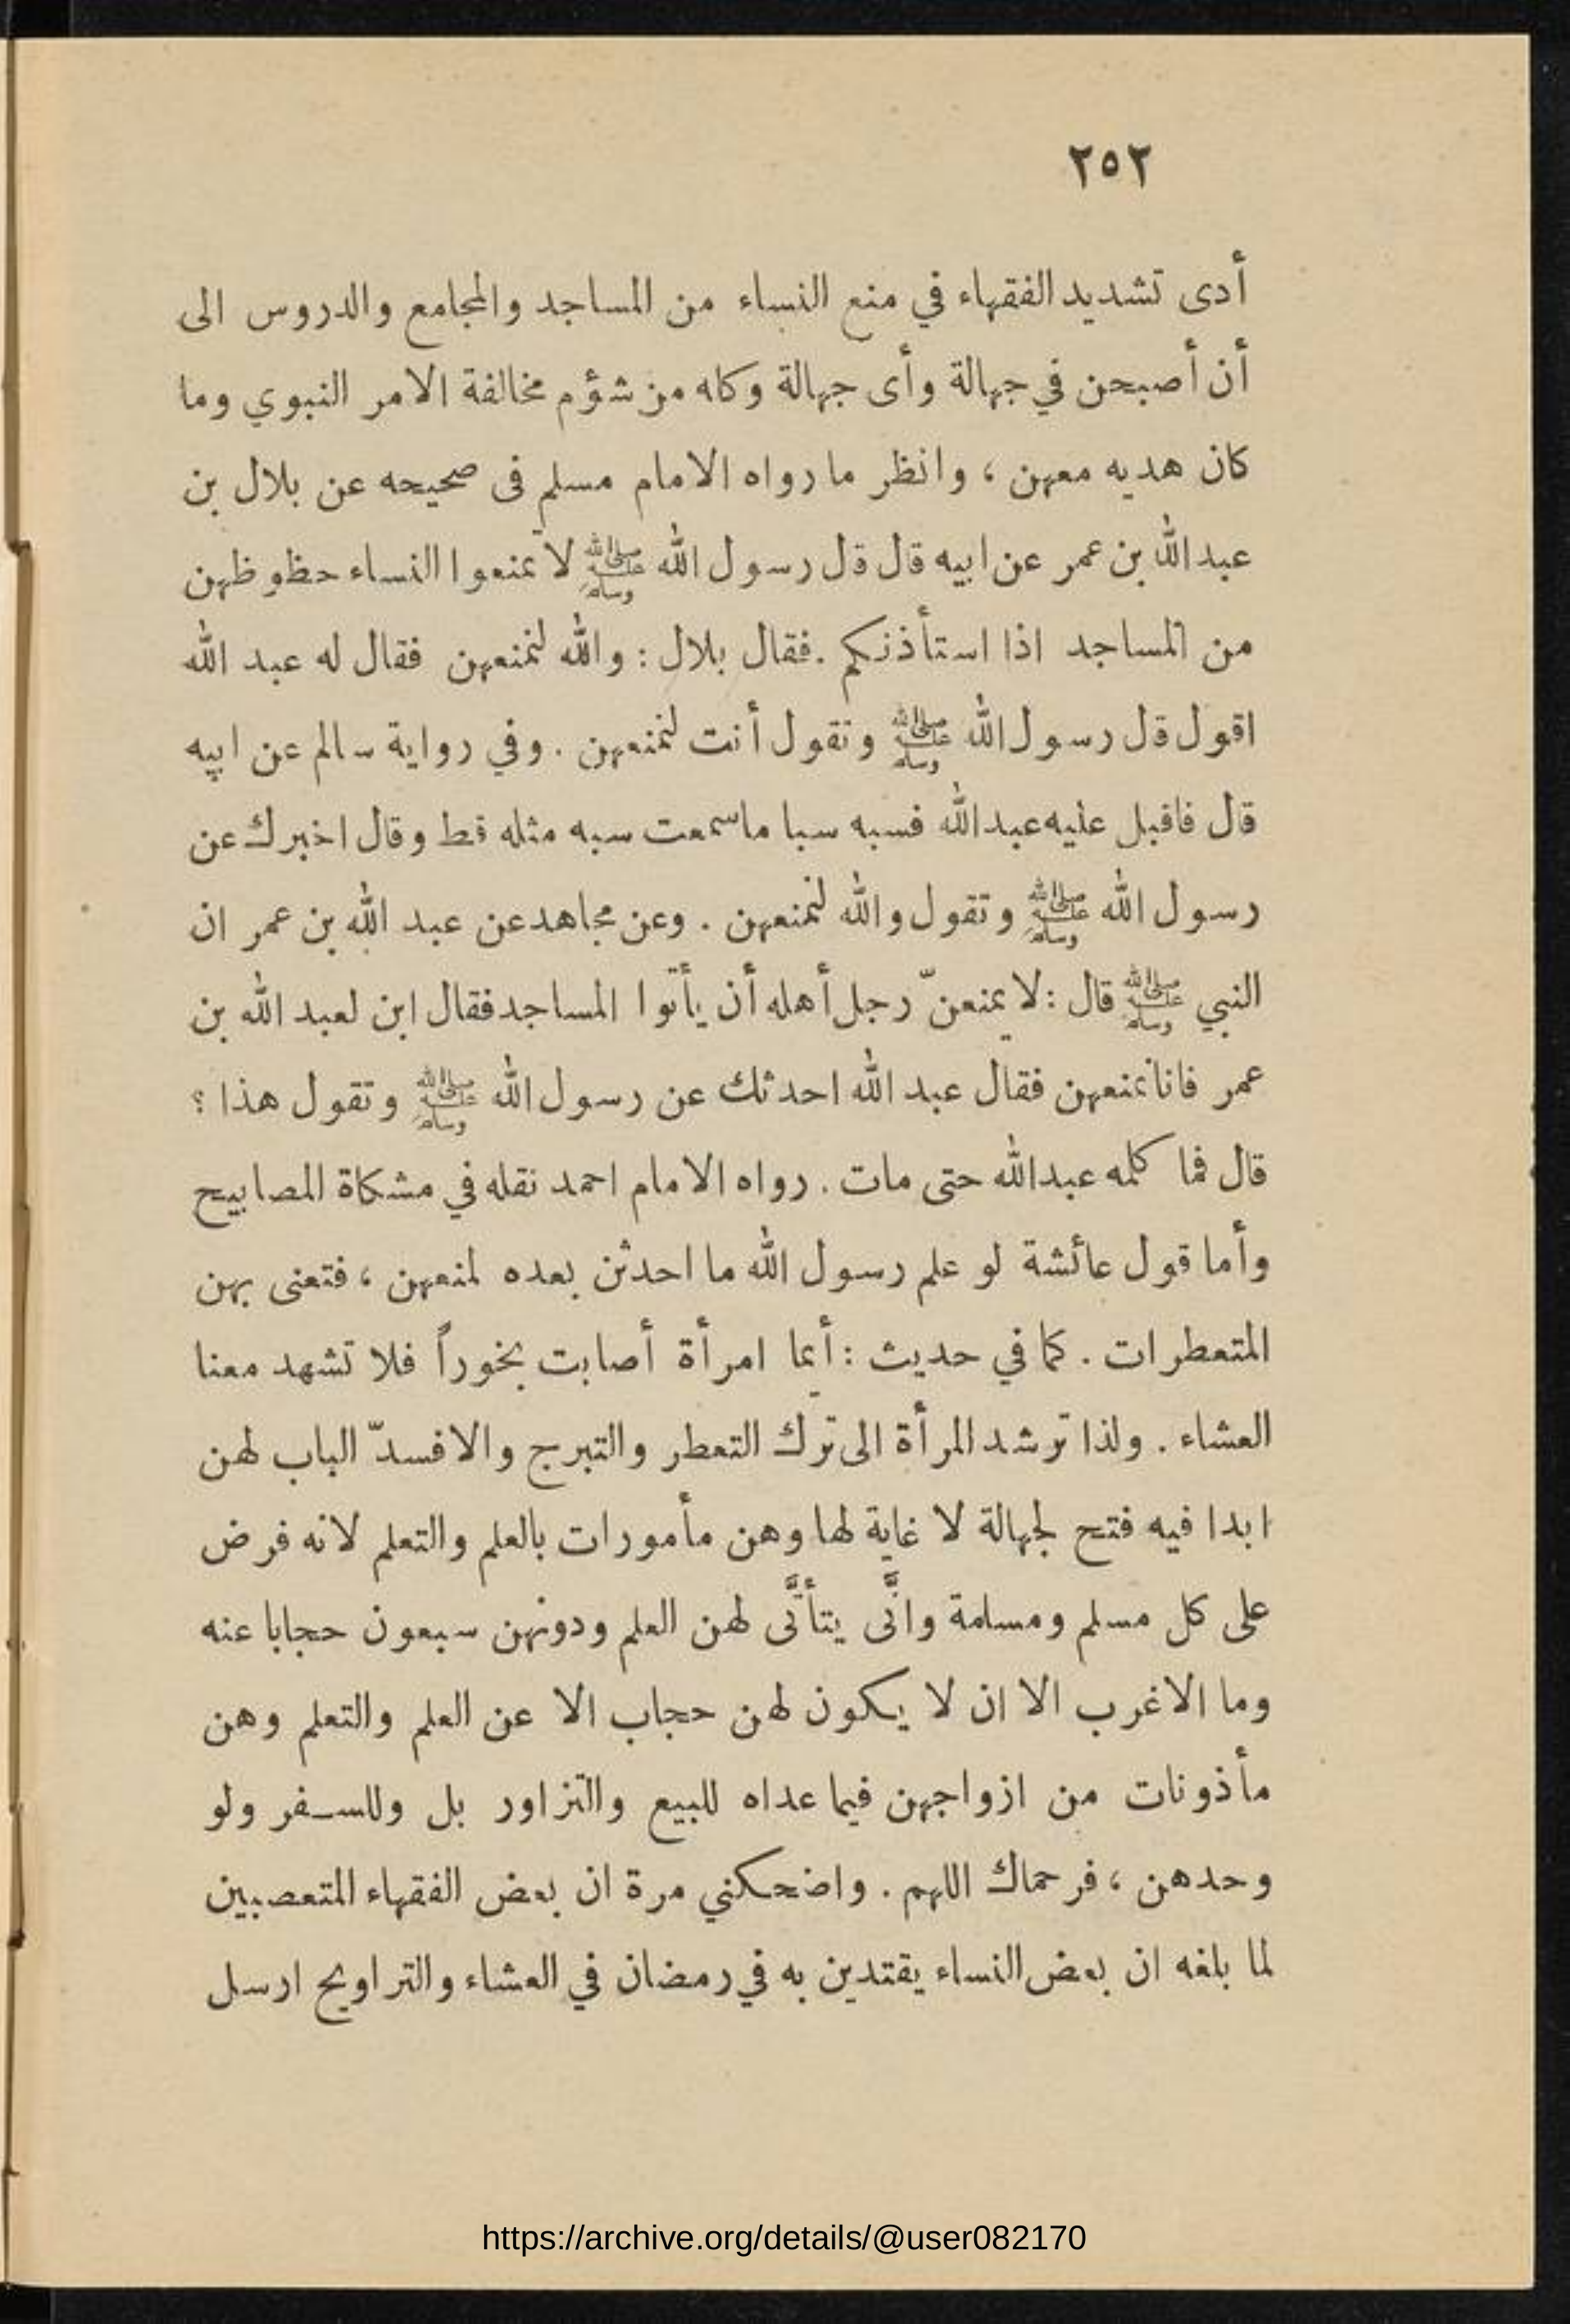 ٢٥٢
أدى تشديد الفقهاء في منع النساء من المساجد والمجامع والدروس الى
أن أصبحن في جهالة وأى جهالة وكله من شؤم مخالفة الامر النبوي وما
كان هديه معهن ، وانظر ما رواه الامام مسلم فى صحيحه عن بلال بن
عبد الله بن عمر عن ابيه قال قل رسول الله ﷺ لا تمنعوا النساء حظوظهن
من المساجد اذا استأذنكم . فقال بلال : والله لنمنعهن فقال له عبد الله
اقول قل رسول الله ﷺ وتقول أنت لنمنعهن . وفي رواية سالم عن ابيه
قال فاقبل عليه عبد الله فسبه سبا ما سمعت سبه مثله قط وقال اخبرك عن
رسول الله ﷺ وتقول والله لنمنعهن . وعن مجاهد عن عبد الله بن عمر ان
النبي ﷺ قال : لا يمنعنّ رجل أهله أن يأتوا المساجد فقال ابن لعبد الله بن
عمر فانا نمنعهن فقال عبد الله احدثك عن رسول الله ﷺ وتقول هذا ؟
قال فما كلمه عبد الله حتى مات . رواه الامام احمد نقله في مشكاة المصابيح
وأما قول عائشة لو علم رسول الله ما احدثن بعده لمنعهن ، فتعنى بهن
المتعطرات . كما في حديث : أيما امرأة أصابت بخوراً فلا تشهد معنا
العشاء . ولذا ترشد المرأة الى ترك التعطر والتبرج والا فسدّ الباب لهن
ابدا فيه فتح لجهالة لا غاية لها وهن مأمورات بالعلم والتعلم لانه فرض
على كل مسلم ومسلمة وانَّى يتأتَّى لهن العلم ودونهن سبعون حجابا عنه
وما الاغرب الا ان لا يكون لهن حجاب الا عن العلم والتعلم وهن
مأذونات من ازواجهن فيما عداه للبيع والتزاور بل وللسفر ولو
وحدهن ، فرحماك اللهم . واضحكني مرة ان بعض الفقهاء المتعصبين
لما بلغه ان بعض النساء يقتدين به في رمضان في العشاء والتراويح ارسل
https://archive.org/details/@user082170